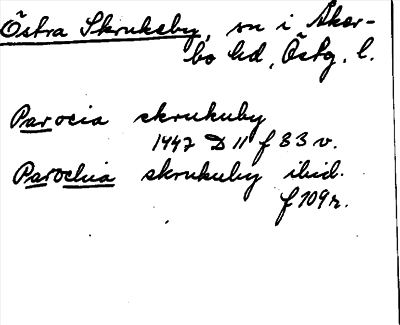 Östra Skrukeby, sn i Åker-
bo hd, Östg. l.
Parocia skrukuby
1447 D 11 f 33 v.
Parochia skrukuby ibid.
f 109 r.